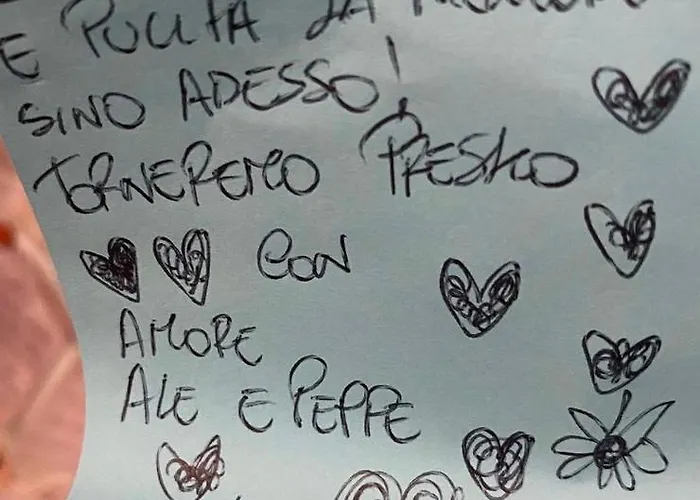 E PULITA DA
SINO ADESSO!
TORNEREMO PRESTO
CON
AMORE
ALE E PEPPE